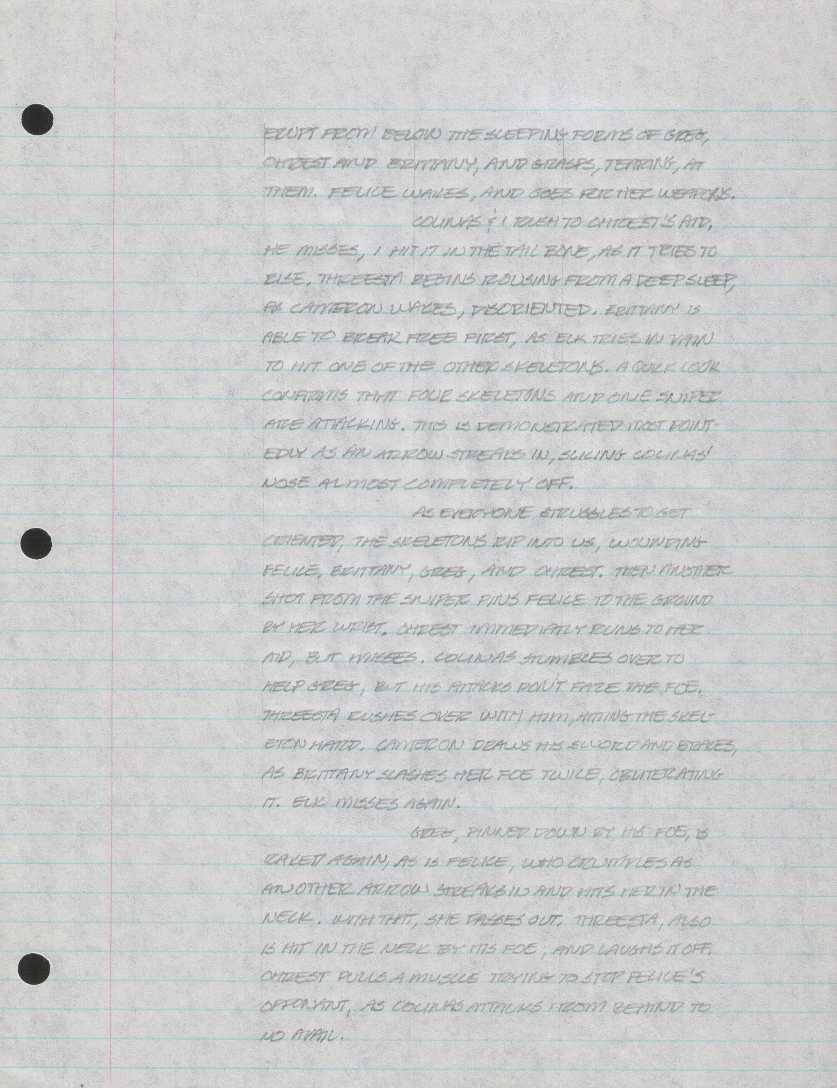 ERUPT FROM BELOW THE SLEEPING FORMS OF GREG,
OHREST AND BRITTANY, AND GRASPS, TEARING, AT
THEM. FELICE WAKES, AND GOES FOR HER WEAPONS.
COLINAS & I RUSH TO OHREST'S AID.
HE MISSES, I HIT IT IN THE TAIL BONE, AS IT TRIES TO
RISE. THREESTA BEGINS ROUSING FROM A DEEP SLEEP,
AS CAMERON WAKES, DISORIENTED. BRITTANY IS
ABLE TO BREAK FREE FIRST, AS ELK TRIES IN VAIN
TO HIT ONE OF THE OTHER SKELETONS. A QUICK LOOK
CONFIRMS THAT FOUR SKELETONS AND ONE SNIPER
ARE ATTACKING. THIS IS DEMONSTRATED MOST POINT-
EDLY AS AN ARROW STREAKS IN, SLICING COLINAS'
NOSE ALMOST COMPLETELY OFF.
AS EVERYONE STRUGGLES TO GET
ORIENTED, THE SKELETONS RIP INTO US, WOUNDING
FELICE, BRITTANY, GREG, AND OHREST. THEN ANOTHER
SHOT FROM THE SNIPER PINS FELICE TO THE GROUND
BY HER WRIST. OHREST IMMEDIATLY RUNS TO HER
AID, BUT MISSES. COLINAS STUMBLES OVER TO
HELP GREG, BUT HIS ATTACKS DON'T FAZE THE FOE.
THREESTA RUSHES OVER WITH HIM, HITTING THE SKEL-
ETON HARD. CAMERON DRAWS HIS SWORD AND BRACES,
AS BRITTANY SLASHES HER FOE TWICE, OBLITERATING
IT. ELK MISSES AGAIN.
GREG, PINNED DOWN BY HIS FOE, IS
RAKED AGAIN, AS IS FELICE, WHO CRUMPLES AS
ANOTHER ARROW STREAKS IN AND HITS HER IN THE
NECK. WITH THAT, SHE PASSES OUT. THREESTA, ALSO
IS HIT IN THE NECK BY HIS FOE, AND LAUGHS IT OFF.
OHREST PULLS A MUSCLE TRYING TO STOP FELICE'S
OPPONANT, AS COLINAS ATTACKS FROM BEHIND TO
NO AVAIL.